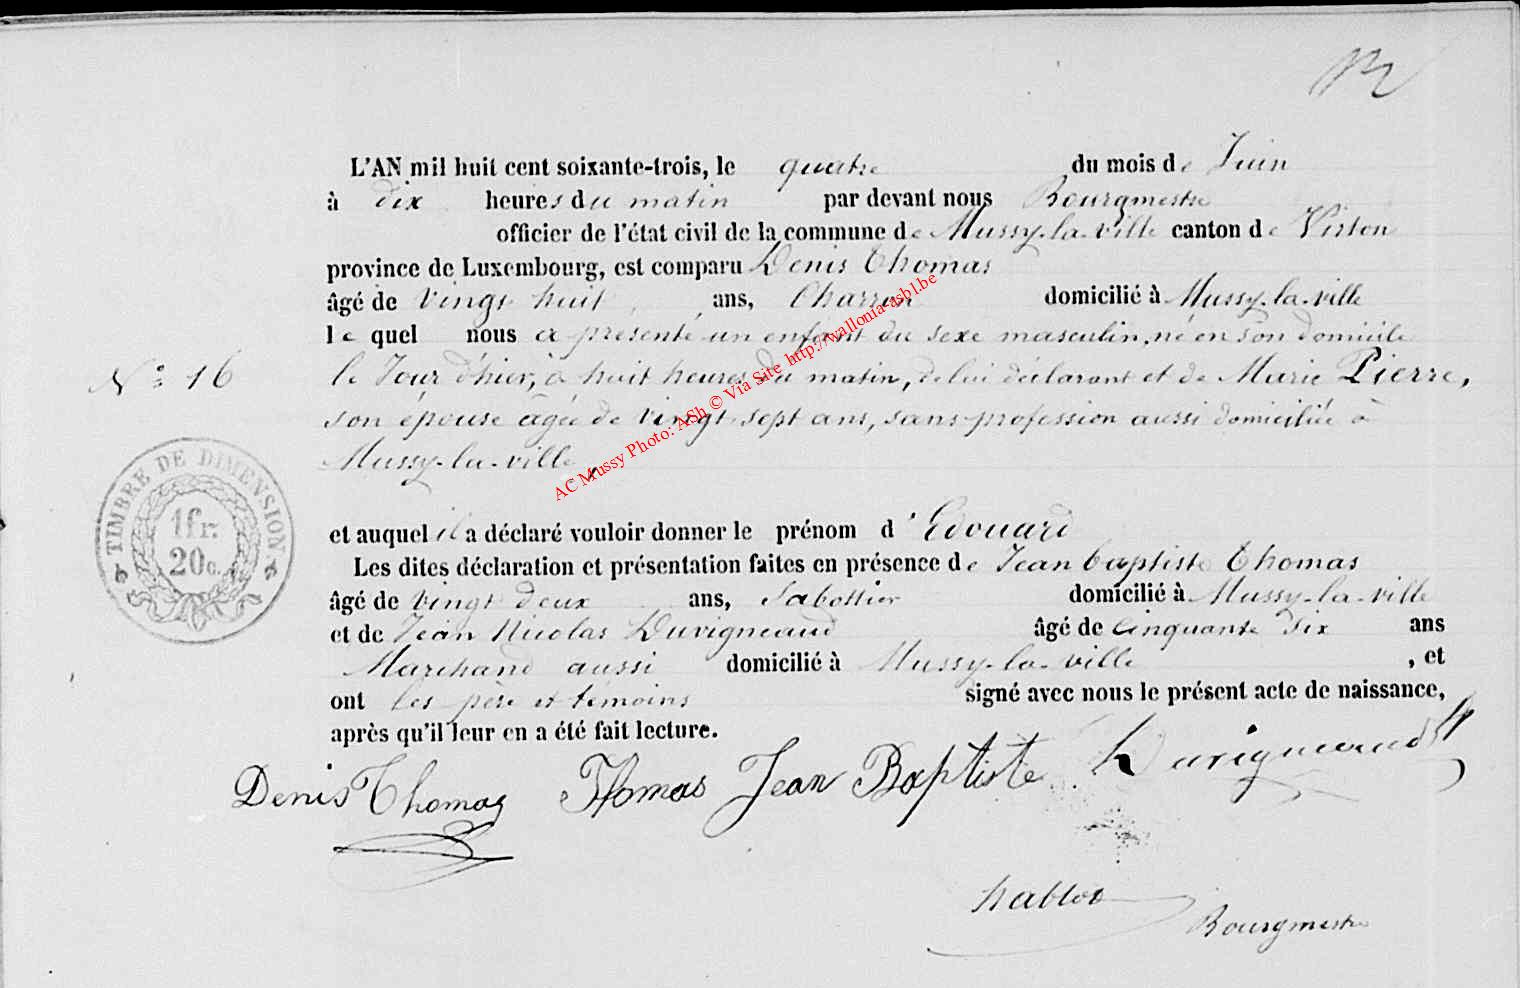 L'AN mil huit cent soixante-trois, le quatre du mois de Juin
à dix heures du matin par devant nous Bourgmestre
officier de l'état civil de la commune de Mussy-la-ville canton de Virton
province de Luxembourg, est comparu Denis Thomas
âgé de vingt huit ans, Charron domicilié à Mussy-la-ville
le quel nous a présenté un enfant du sexe masculin, né en son domicile
No 16
le Jour d'hier, à huit heures du matin, de lui déclarant et de Marie Pierre,
son épouse âgée de vingt sept ans, sans profession aussi domiciliée à
Mussy-la-ville,
AC Mussy Photo: ASh © Via Site http://wallonia-asbl.be
TIMBRE DE DIMENSION
1fr.
20c.
et auquel il a déclaré vouloir donner le prénom d'Edouard
Les dites déclaration et présentation faites en présence de Jean Baptiste Thomas
âgé de vingt deux ans, Sabottier domicilié à Mussy-la-ville
et de Jean Nicolas Duvigneaud âgé de Cinquante Dix ans
Marchand aussi domicilié à Mussy-la-ville, et
ont les père et témoins signé avec nous le présent acte de naissance,
après qu'il leur en a été fait lecture.
Denis Thomas Thomas Jean Baptiste Duvigneaud
Bourgmestre